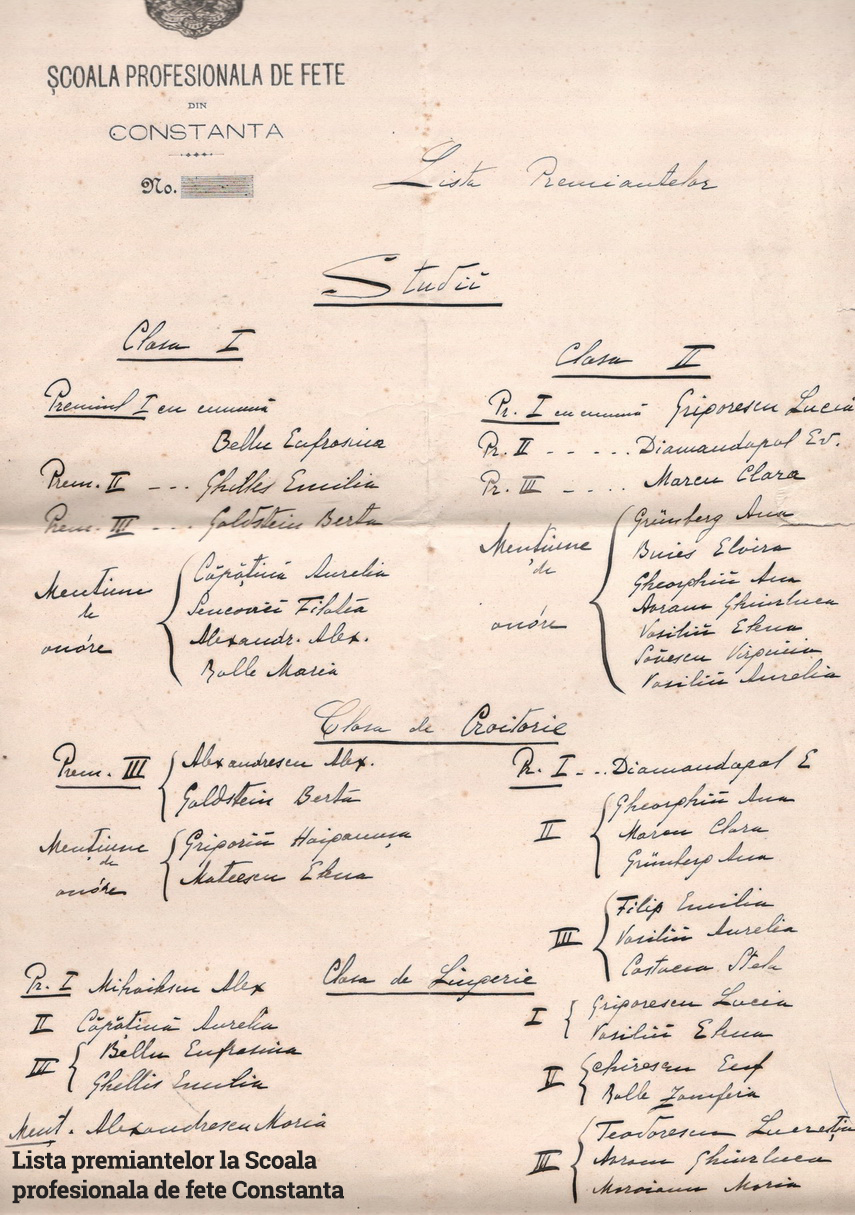 ȘCOALA PROFESIONALA DE FETE
DIN
CONSTANTA
No.
Lista Premiantelor
Studii
Clasa I
Premiul I cu cunună
Bellu Eufrosina
Prem. II --- Ghellis Emilia
Prem. III --- Goldstein Berta
Mențiune
de
onóre
Căpățină Aurelia
Filotia
Alexandr. Alex.
Balle Maria
Clasa II
Pr. I cu cunună Grigorescu Lucia
Pr. II - - . . . Diamandopol Ev.
Pr. III - . . . Marcu Clara
Mențiune
de
onóre
Grünberg Ana
Elvira
Gheorghiŭ Ana
Avram Ghiurluca
Vasiliŭ Elena
Vasiliŭ Aurelia
Clasa de Croitorie
Prem. III
Alexandrescu Alex.
Goldstein Berta
Mențiune
de
onóre
Grigoriŭ
Mateescu Elena
Pr. I - . . Diamandopol E
II
Gheorghiŭ Ana
Marcu Clara
Grünberg Ana
III
Filip Emilia
Vasiliŭ Aurelia
Stela
Clasa de Lingerie
Pr. I Alex
II Căpățină Aurelia
III
Bellu Eufrosina
Ghellis Emilia
Menț. Alexandrescu Maria
I
Grigorescu Lucia
Vasiliŭ Elena
II
Chirescu Euf
Balle Zamfira
III
Teodorescu Lucreția
Avram Ghiurluca
Maria
Lista premiantelor la Scoala
profesionala de fete Constanta